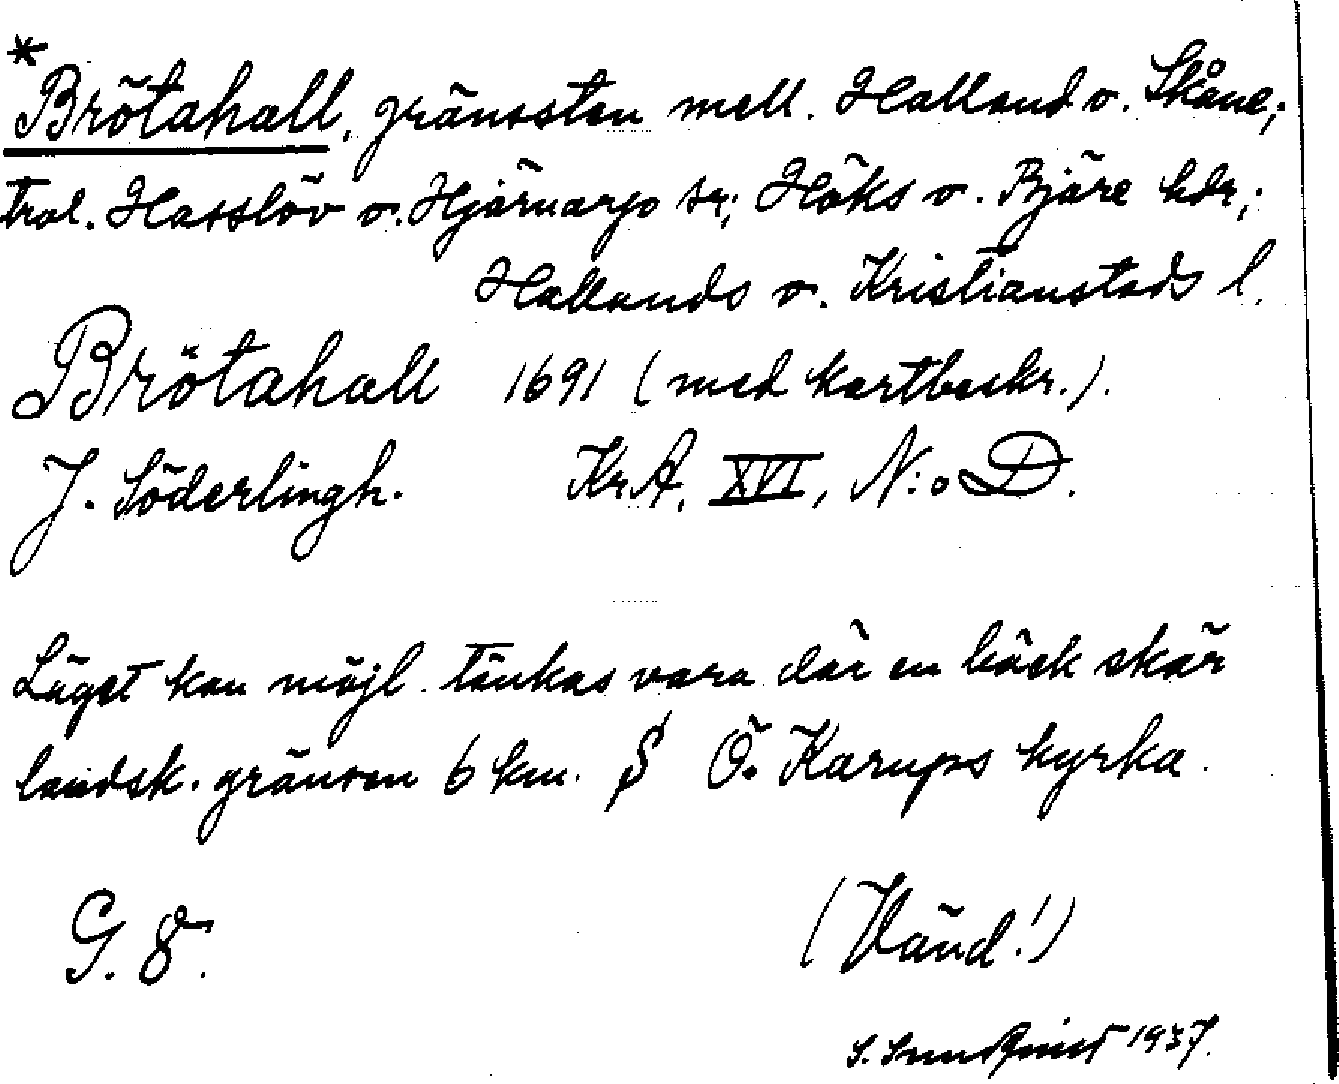 *Brötahall, gränssten mell. Halland o. Skåne;
trol. Hasslöv o. Hjärnarps sr; Höks o. Bjäre hdr;
Hallands o. Kristianstads l.
Brötahall 1691 (med kartbeskr.).
J. Söderlingh. Kr.A. XVI, N:o D.
Läget kan möjl. tänkas vara där en bäck skär
landsk. gränsen 6 km. S Ö. Karups kyrka.
G. 8.
(Vänd!)
S. 1937.